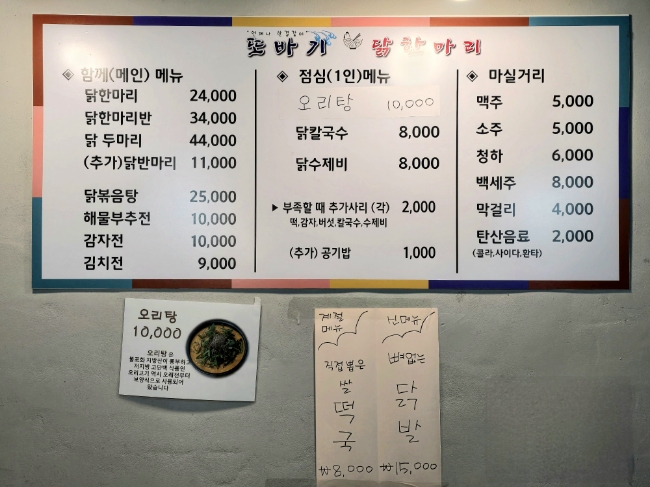 "언제나 한결같이"
또바기 닭한마리
◈ 함께(메인) 메뉴
닭한마리 24,000
닭한마리반 34,000
닭 두마리 44,000
(추가)닭반마리 11,000
닭볶음탕 25,000
해물부추전 10,000
감자전 10,000
김치전 9,000
◈ 점심(1인)메뉴
오리탕 10,000
닭칼국수 8,000
닭수제비 8,000
▶ 부족할 때 추가사리 (각) 2,000
떡,감자,버섯,칼국수,수제비
(추가) 공기밥 1,000
◈ 마실거리
맥주 5,000
소주 5,000
청하 6,000
백세주 8,000
막걸리 4,000
탄산음료 2,000
(콜라,사이다,환타)
오리탕
10,000
오리탕은
불포화 지방산이 풍부하고
저지방 고단백 식품인
오리고기 역시 오래전부터
보양식으로 사용되어
왔습니다
계절
메뉴
직접 뽑은
쌀
떡
국
₩8,000
신메뉴
뼈없는
닭
발
₩15,000